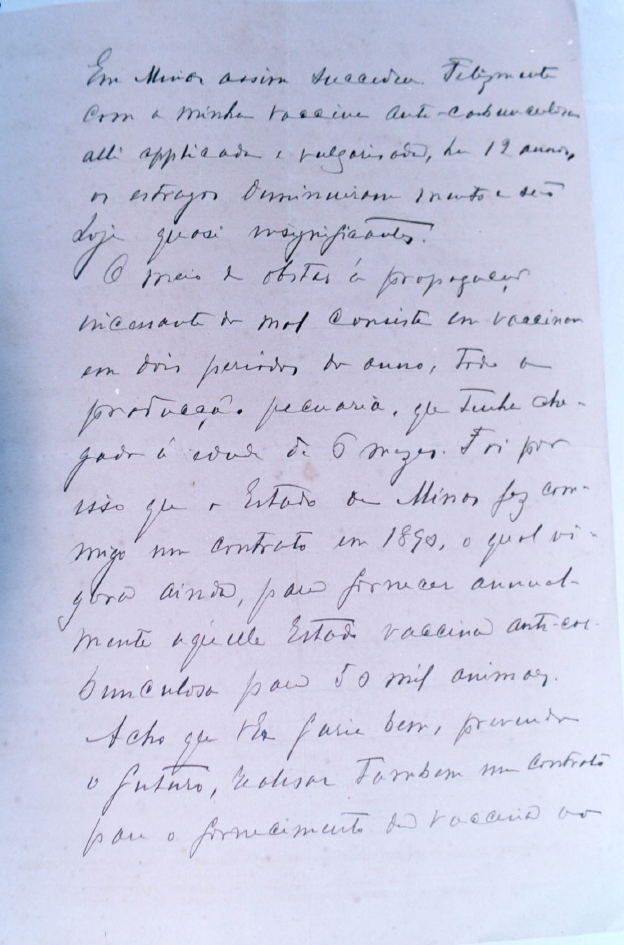 Em Minas assim succedeu. Felizmente
com a minha vaccina anti-carbunculosa
alli applicada e vulgarisada, ha 12 annos,
os estragos diminuiram muito e são
hoje quasi insignificantes.
O meio de obstar á propagação
incessante do mal consiste em vaccinar
em dois periodos do anno, toda a
producção pecuaria, que tenha che-
gado á idade de 6 mezes. Foi por
isso que o Estado de Minas fez com-
migo um contrato em 1898, o qual vi-
gora ainda, para fornecer annual-
mente aquelle Estado vaccina anti-car-
bunculosa para 50 mil animaes.
Acho que VEx faria bem, prevendo
o futuro, realisar tambem um contrato
para o fornecimento da vaccina ao